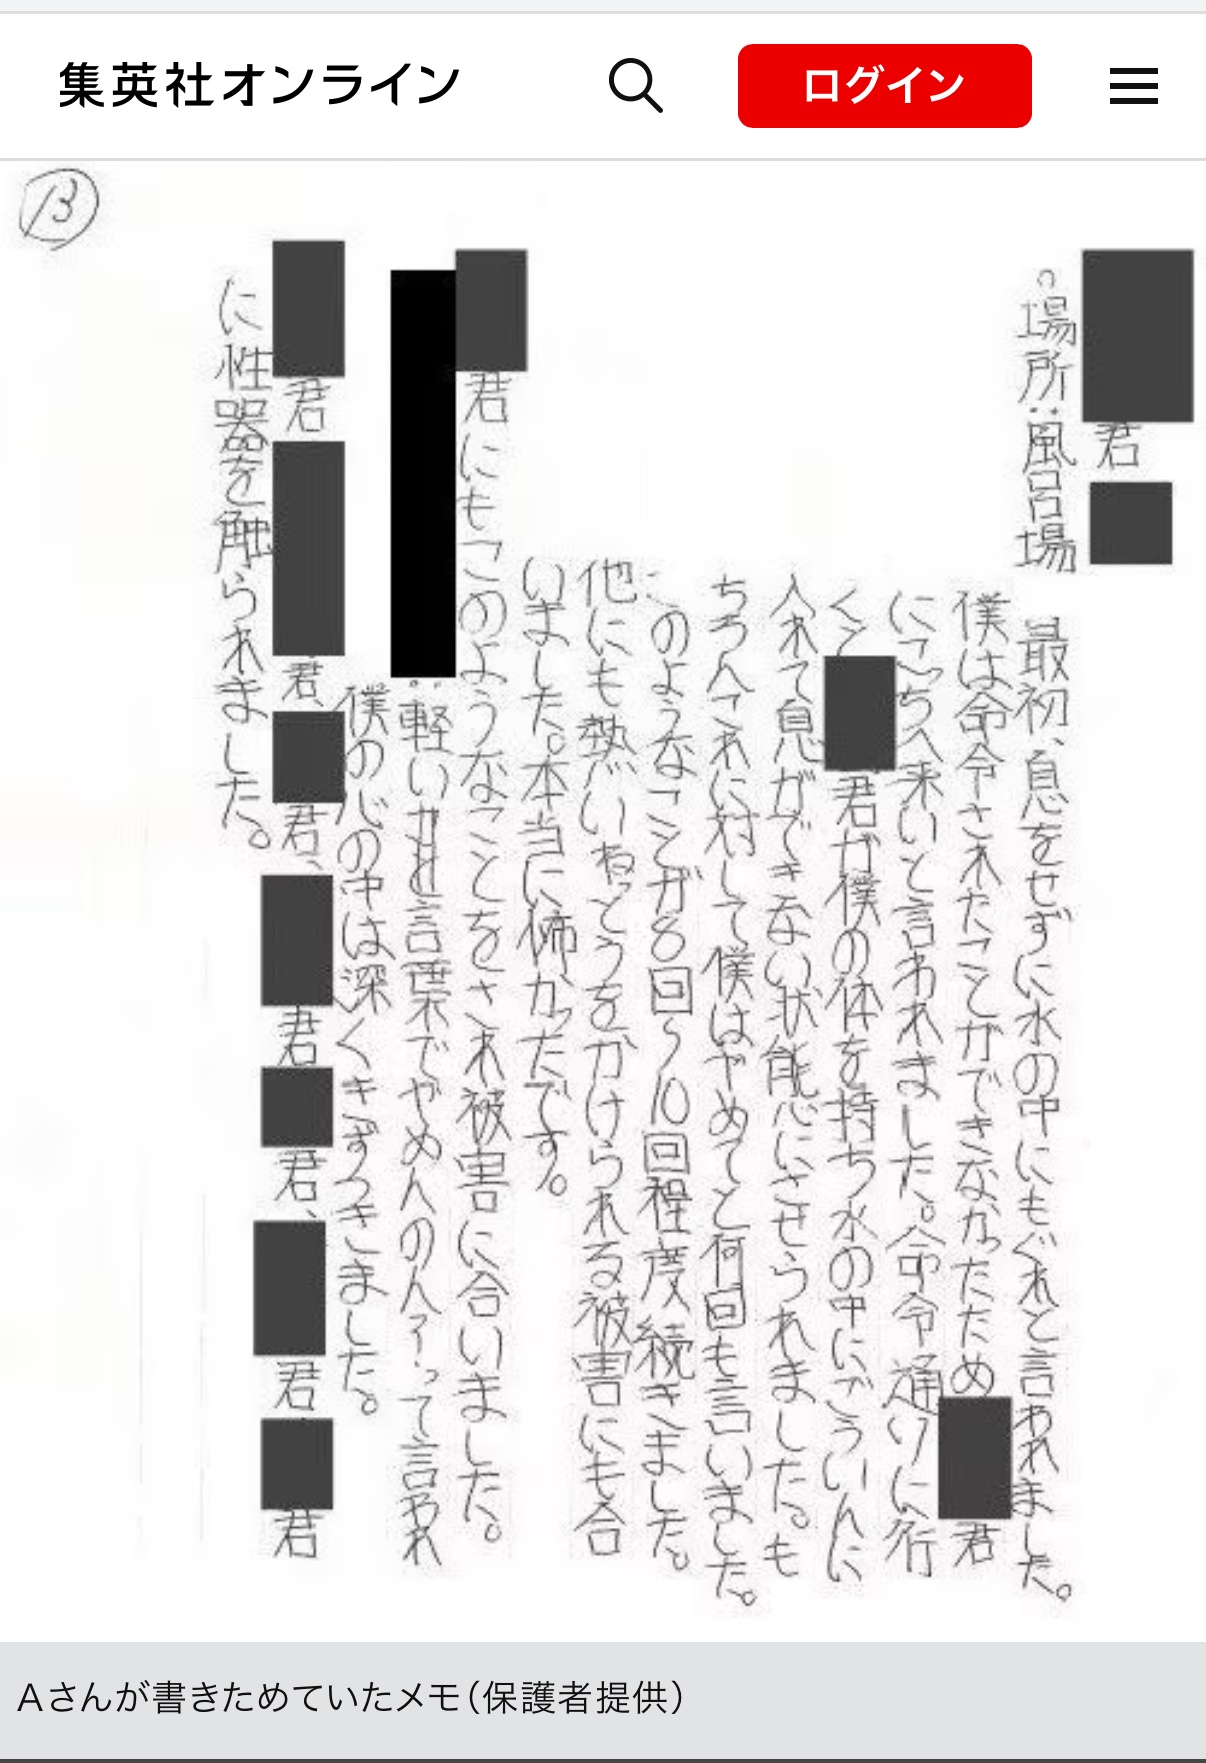 集英社オンライン
ログイン
13
君
。場所:風呂場
最初、息をせずに水の中にもぐれと言われました。
僕は命令されたことができなかったため
君
にこっちへ来いと言われました。命令通りに行
くと
君が僕の体を持ち水の中にごういんに
入れて息ができない状態にさせられました。も
ちろんこれに対して僕はやめてと何回も言いました。
このようなことが8回〜10回程度続きました。
他にも熱いねっとうをかけられる被害にも合
いました。本当に怖かったです。
君にもこのようなことをされ被害に合いました。
:軽い
言葉でやめへのん?って言われ
僕の心の中は深くきずつきました。
君
君、
君、
君
君、
君
君
に性器を触られました。
Aさんが書きためていたメモ(保護者提供)